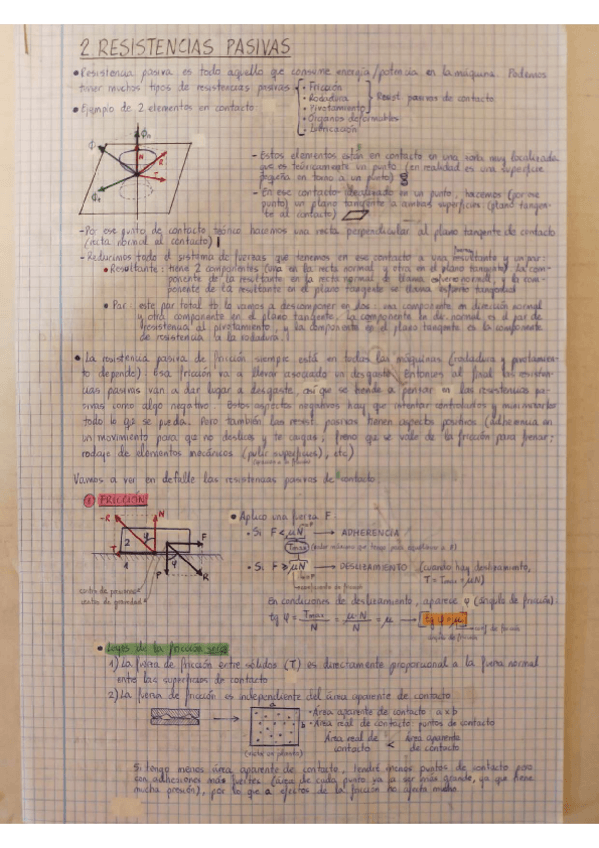 2. RESISTENCIAS PASIVAS
• Resistencia pasiva es todo aquello que consume energía/potencia en la máquina. Podemos
tener muchos tipos de resistencias pasivas
• Fricción
• Rodadura
• Pivotamiento
Resist. pasivas de contacto
• Órganos deformables
• Lubricación
• Ejemplo de 2 elementos en contacto:
N
R
T
- Estos elementos están en contacto en una zona muy localizada
que es teóricamente un punto (en realidad es una superficie
pequeña en torno a un punto)
- En ese contacto localizado en un punto, hacemos (por ese
punto) un plano tangente a ambas superficies (plano tangen-
te al contacto)
- Por ese punto de contacto teórico hacemos una recta perpendicular al plano tangente de contacto
(recta normal al contacto)
- Reducimos todo el sistema de fuerzas que tenemos en ese contacto a una resultante y un par:
• Resultante: tiene 2 componentes (una en la recta normal y otra en el plano tangente). La com-
ponente de la resultante en la recta normal se llama esfuerzo normal, y la com-
ponente de la resultante en el plano tangente se llama esfuerzo tangencial
• Par: este par total lo vamos a descomponer en dos: una componente en dirección normal
y otra componente en el plano tangente. La componente en dir. normal es el par de
resistencia al pivotamiento, y la componente en el plano tangente es la componente
de resistencia a la rodadura.
• La resistencia pasiva de fricción siempre está en todas las máquinas (rodadura y pivotamien-
to depende). Esa fricción va a llevar asociado un desgaste. Entonces al final las resisten-
cias pasivas van a dar lugar a desgaste, así que se tiende a pensar en las resistencias pa-
sivas como algo negativo. Estos aspectos negativos hay que intentar controlarlos y minimizarlos
todo lo que se pueda. Pero también las resist. pasivas tienen aspectos positivos (adherencia en
un movimiento para que no deslices y te caigas; freno que se vale de la fricción para frenar;
rodaje de elementos mecánicos (pulir superficies), etc)
Vamos a ver en detalle las resistencias pasivas de contacto:
1 FRICCIÓN
-R
N
2
φ
F
T
1
P
φ
R
centro de presiones
centro de gravedad
• Aplico una fuerza F
• Si F < μN → ADHERENCIA
Tmax
• Si F ≥ μN → DESLIZAMIENTO (cuando hay deslizamiento,
T = Tmax = μN)
coeficiente de fricción
En condiciones de deslizamiento, aparece φ (ángulo de fricción):
tg φ = Tmax/N = μ·N/N = μ → tg φ = μ
coef. de fricción
ángulo de fricción
• Leyes de la fricción seca
1) La fuerza de fricción entre sólidos (T) es directamente proporcional a la fuerza normal
entre las superficies de contacto
2) La fuerza de fricción es independiente del área aparente de contacto
a
b
• Área aparente de contacto: a x b
• Área real de contacto: puntos de contacto
Área real de contacto < Área aparente de contacto
Si tengo menos área aparente de contacto, tendré menos puntos de contacto pero
con adhesiones más fuertes (área de cada punto ya va a ser más grande, ya que tiene
mucha presión), por lo que a efectos de la fricción no afecta mucho.